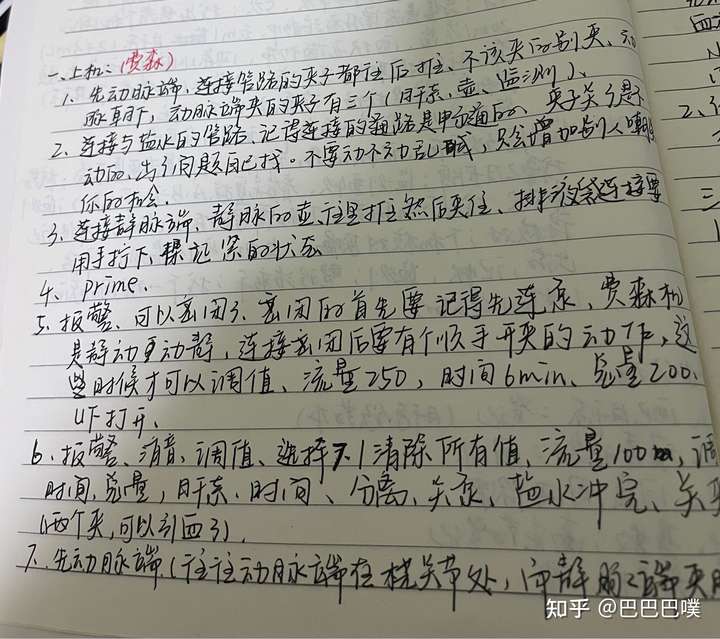 一、上机:(费森)
1、先动脉端,连接管路的夹子都往后推、不该夹的别夹、动
脉朝下,动脉端夹的夹子有三个(肝素、壶、监测)、
2、连接与盐水的管路、记得连接的通路是申通的、夹子关
动的、出了问题自己找。不要动不动乱喊,只会增加别人嘲
你的机会、
3、连接静脉端、静脉的壶、往里推然后夹住、排液袋连接要
用手拧下、拧起 紧的状态
4、prime、
5、报警、可以密闭了、密闭的首先要记得先连泵,费森机
是静动更动静,连接密闭后要有个顺手开夹的动作,这
时候才可以调值、流量250,时间6min、总量200、
UF打开、
6、报警、消音、调值、选择7.1清除所有值、流量100,调
时间、总量,肝素、时间、分离、关泵、盐水冲完、关
(两个夹,可以引血了)、
7、先动脉端(往往动脉端在桡关节处,向静脉端夹
2、
三
1
知乎 @巴巴巴噗